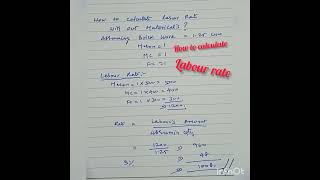 How to calculate Labour Rate
with out Material's?
Assuming Brick Work = 1.25 cum
Mason = 1
MC = 1
FC = 1
How to calculate
Labour rate
Labour Rate:-
Mason = 1 x 500 = 500
MC = 1 x 400 = 400
FC = 1 x 300 = 300
1200
Rate = Labour's Amount
Assuming Qty
= 1200 960
1.25
5% 48
1008